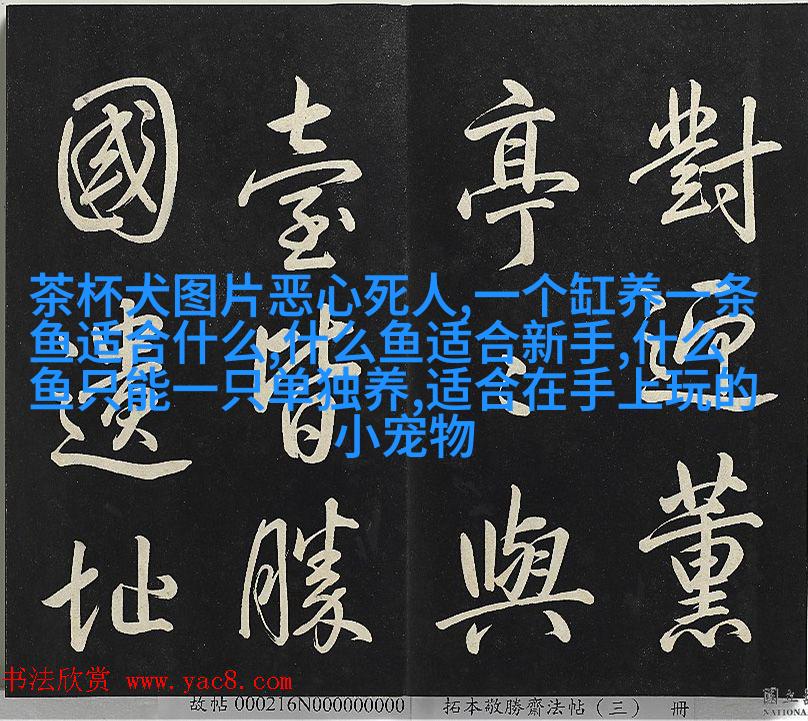 對 薰
亭 與
臺皆勝
國遺址
茶杯犬图片恶心死人,一个缸养一条
鱼适合什么,什么鱼适合新手,什么
鱼只能一只单独养,适合在手上玩的
小宠物
书法欣赏 www.yac8.com
故帖 000216N000000000 拓本敬勝齋法帖（三） 冊
國立
NATIONA